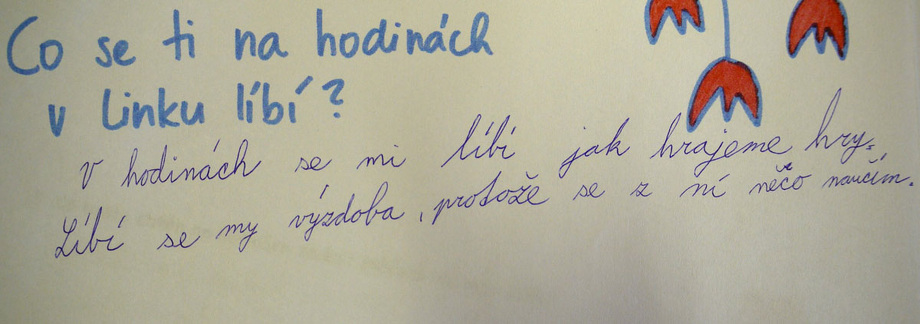 Co se ti na hodinách
v Linku líbí?
V hodinách se mi líbí jak hrajeme hry.
Líbí se my výzdoba, protože se z ní něčo naučím.